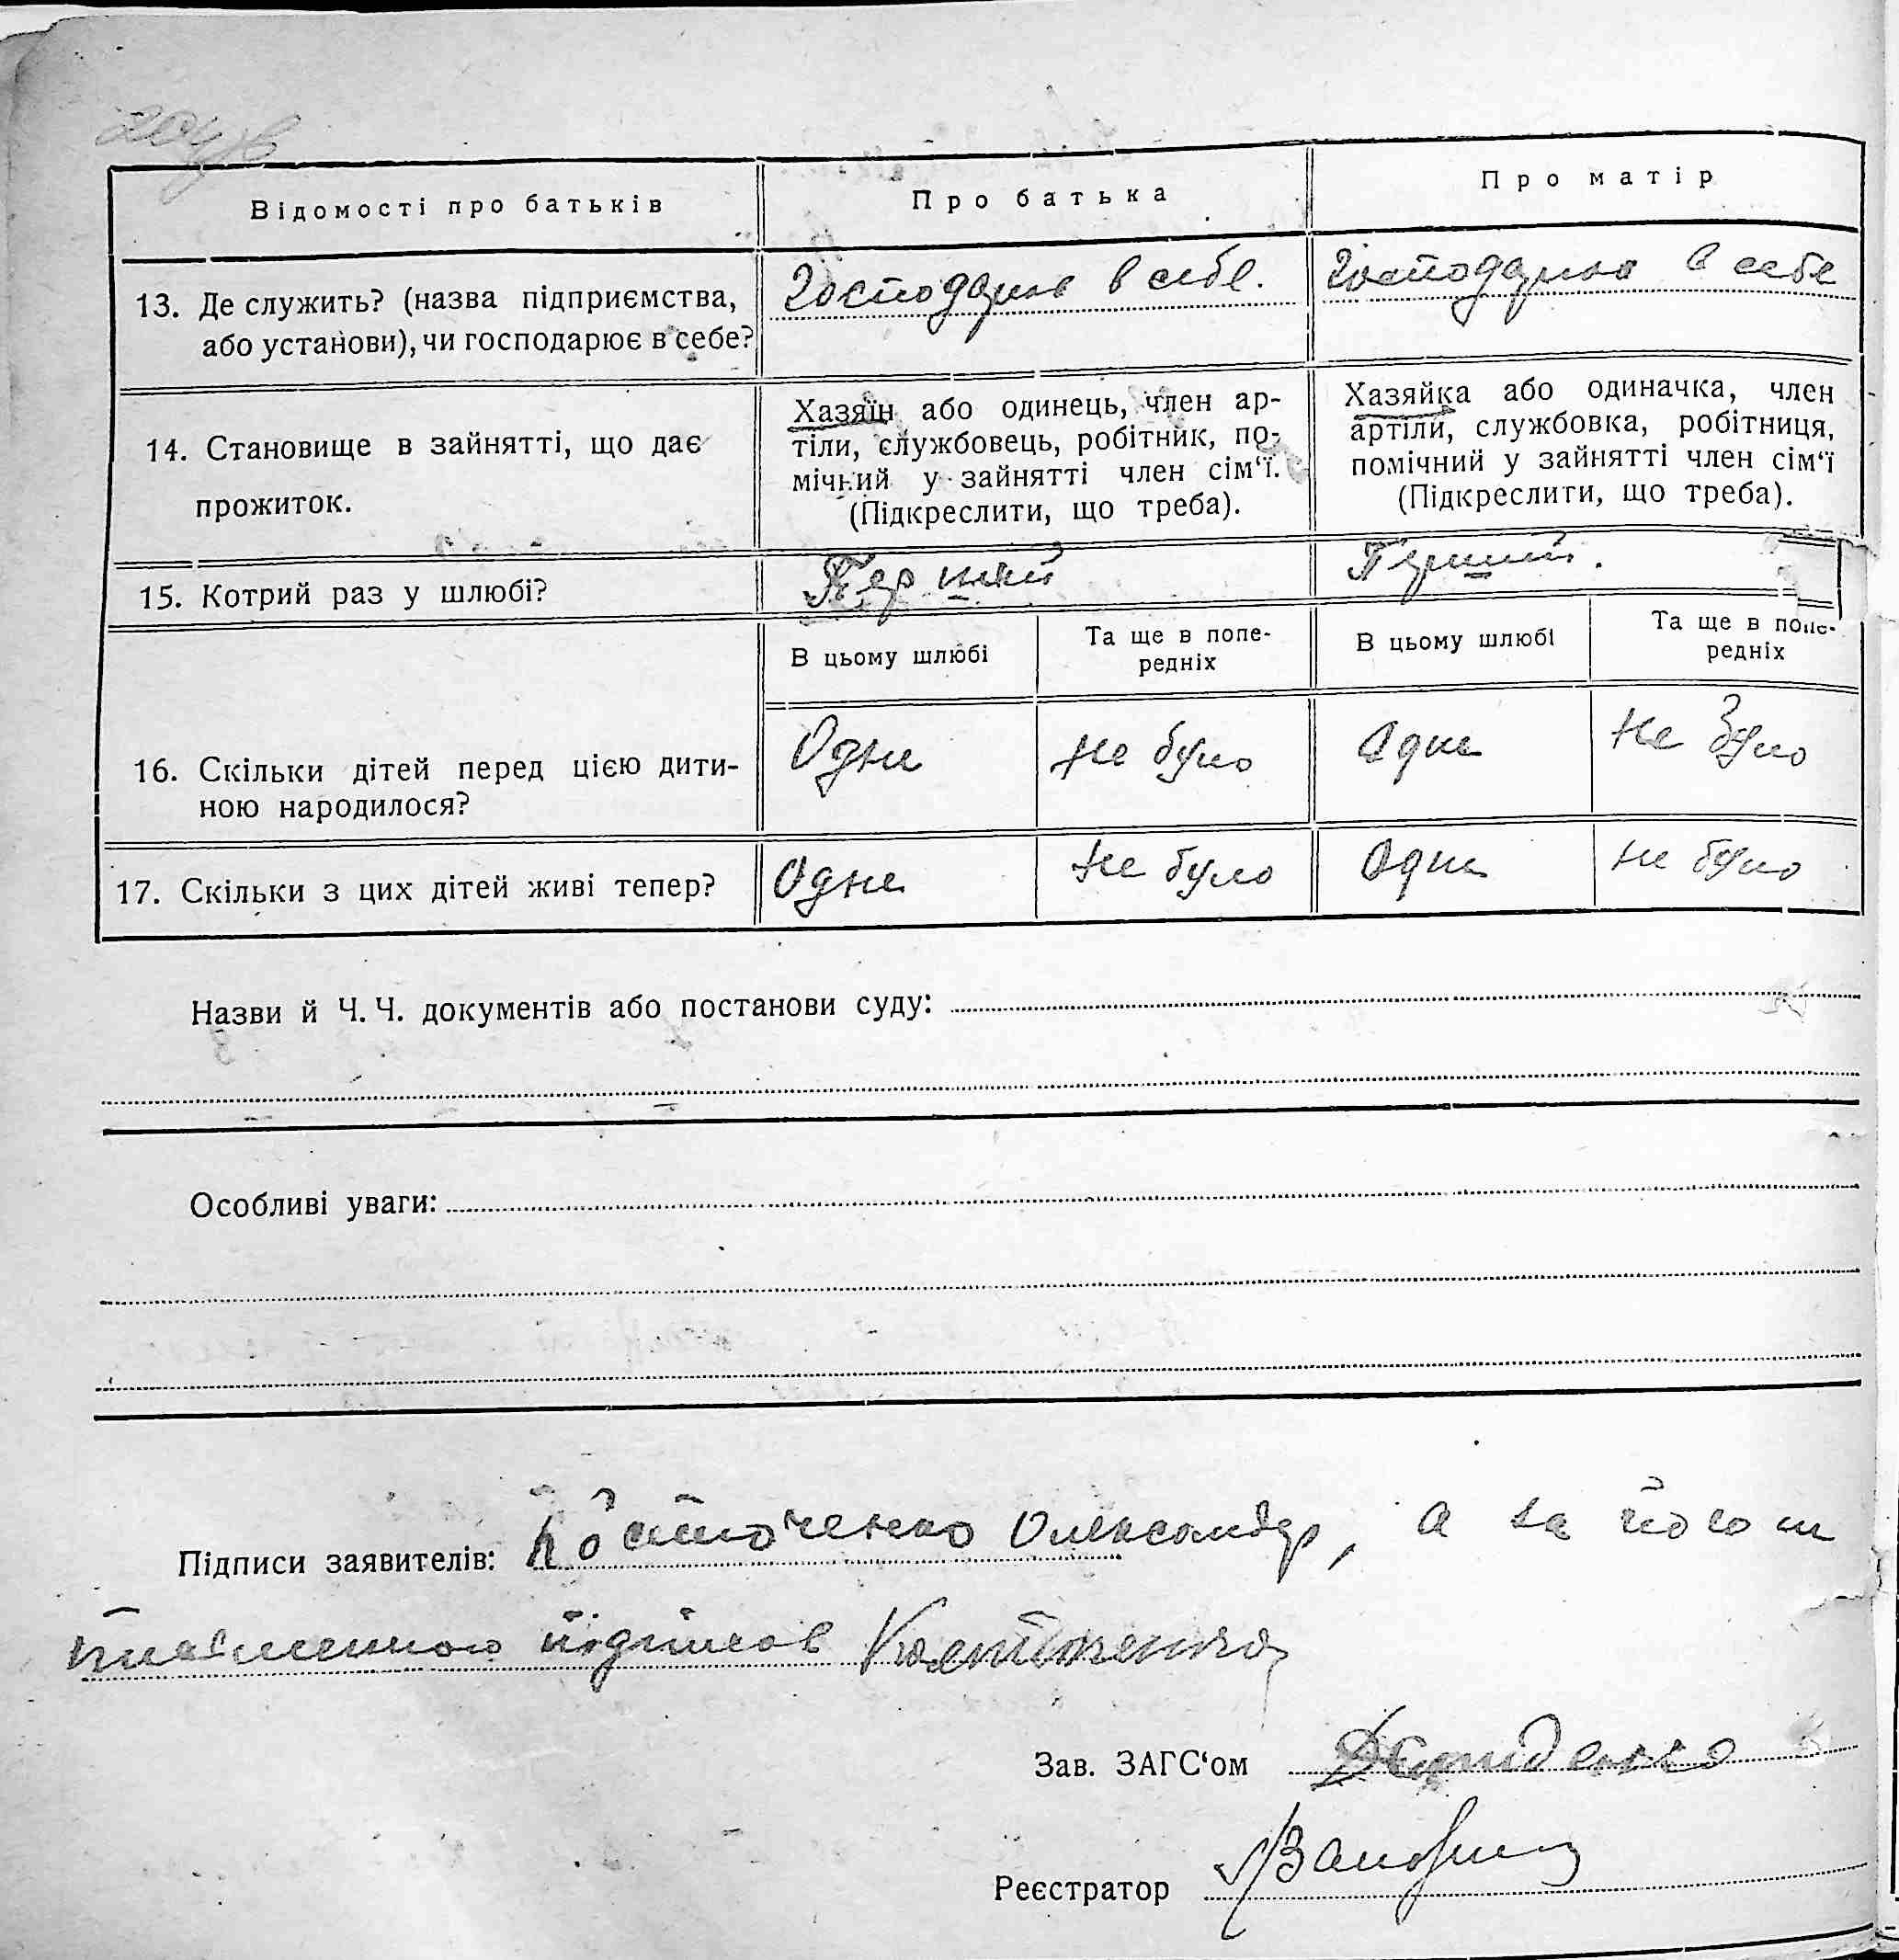 204 зв
Відомості про батьків
Про батька
Про матір
13. Де служить? (назва підприємства,
або установи), чи господарює в себе?
Господарює в себе.
Господарює в себе
14. Становище в зайнятті, що дає
прожиток.
Хазяїн або одинець, член ар-
тіли, службовець, робітник, по-
мічний у зайнятті член сім‘ї.
(Підкреслити, що треба).
Хазяйка або одиначка, член
артіли, службовка, робітниця,
помічний у зайнятті член сім‘ї
(Підкреслити, що треба).
15. Котрий раз у шлюбі?
Перший
Перший.
В цьому шлюбі
Та ще в попе-
редніх
В цьому шлюбі
Та ще в попе-
редніх
16. Скільки дітей перед цією дити-
ною народилося?
Одне
не було
Одне
не було
17. Скільки з цих дітей живі тепер?
Одне
не було
Одне
не було
Назви й Ч. Ч. документів або постанови суду:
Особливі уваги:
Підписи заявителів: Костюченко Олександр, а за його
підписав Костюченко
Зав. ЗАГС‘ом
Реєстратор